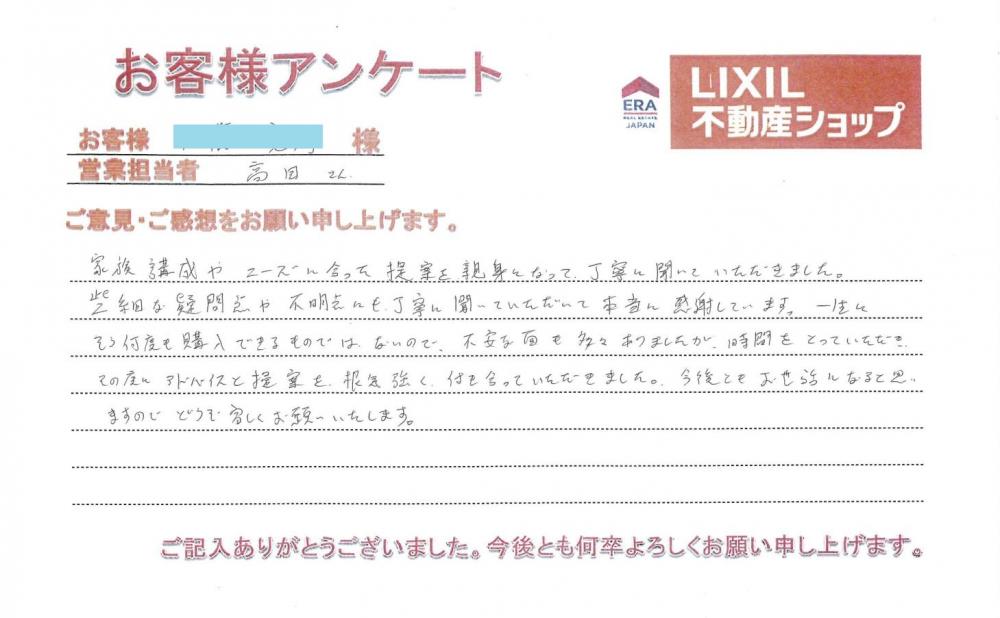 お客様アンケート
ERA
REAL ESTATE
JAPAN
LIXIL
不動産ショップ
お客様 様
営業担当者 高田さん
ご意見・ご感想をお願い申し上げます。
家族構成やニーズに合った提案を親身になって、丁寧に聞いていただきました。
些細な疑問点や不明点にも、丁寧に聞いていただいて本当に感謝しています。一生に
そう何度も購入できるものではないので、不安な面も多々ありましたが、時間をとっていただき、
その度にアドバイスと提案を、根気強く、付き合っていただきました。今後ともお世話になると思い
ますのでどうぞ宜しくお願いいたします。
ご記入ありがとうございました。今後とも何卒よろしくお願い申し上げます。